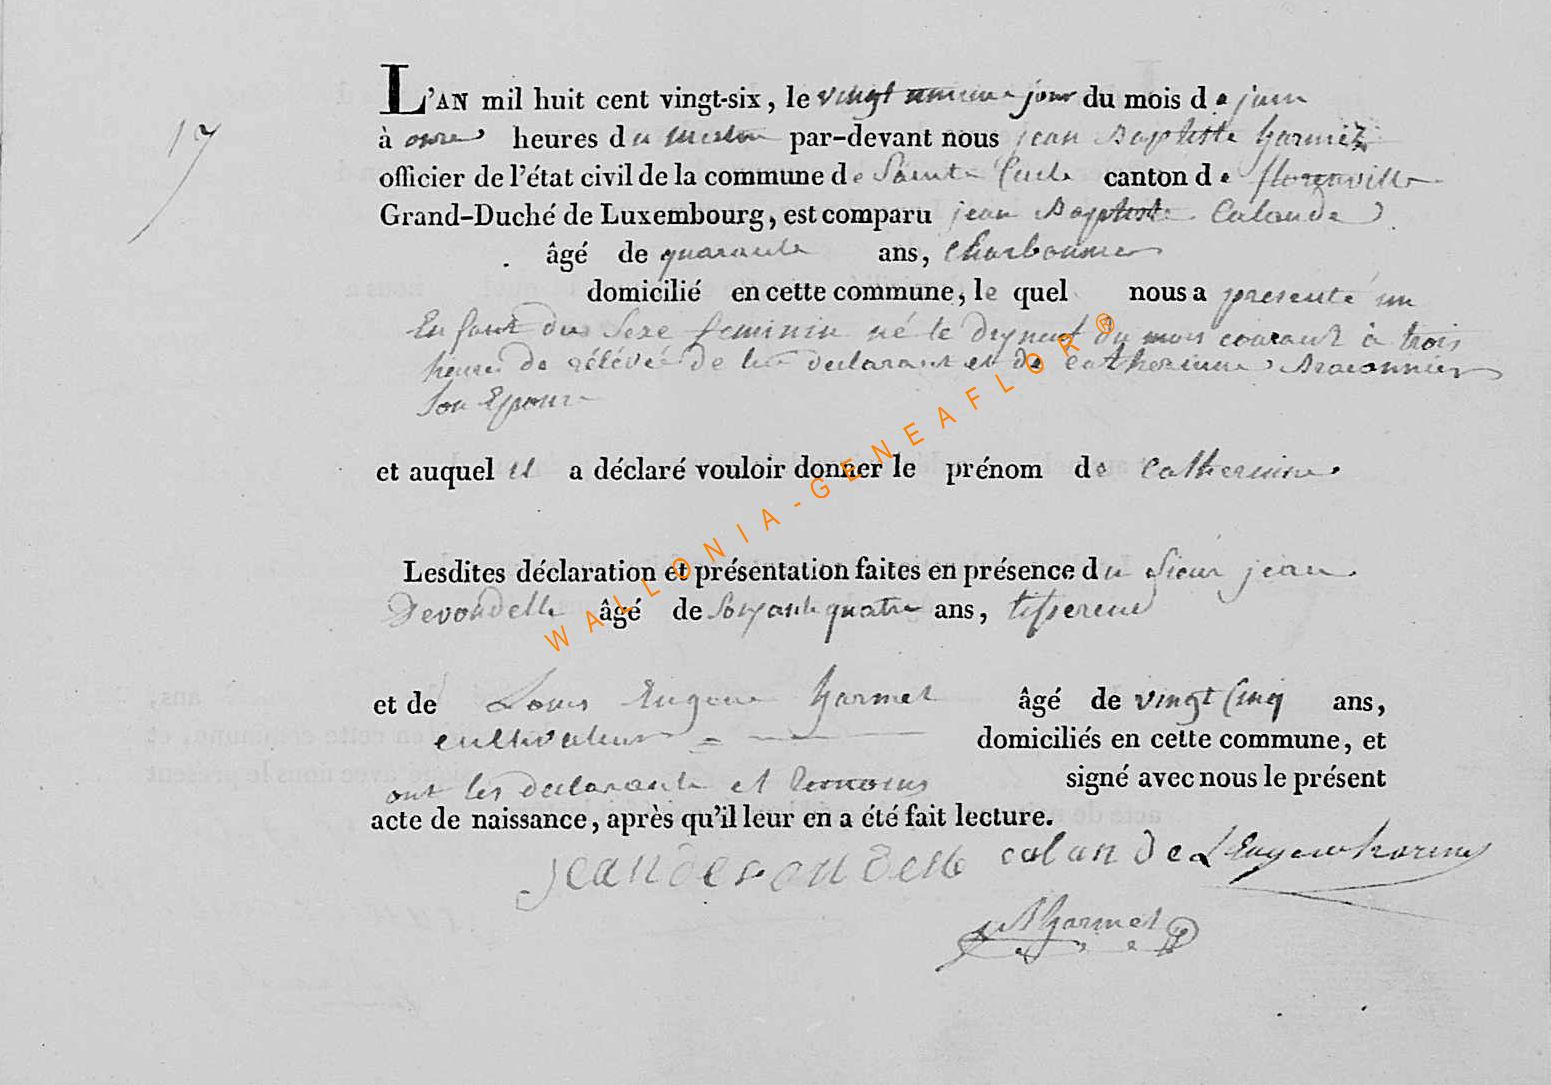 17
L'AN mil huit cent vingt-six, le vingt unieme jour du mois de juin
à onze heures du matin par-devant nous jean Baptiste harmel
officier de l'état civil de la commune de Sainte Cecile canton de florenville
Grand-Duché de Luxembourg, est comparu jean Baptiste Calande
âgé de quarante ans, Charbonnier
domicilié en cette commune, le quel nous a presenté un
Enfant du Sexe feminin né le dix neuf du mois courant à trois
heures de rélévée de lui declarant et de catherinne Braconnier
Son Epouse
et auquel il a déclaré vouloir donner le prénom de Catherinne
Lesdites déclaration et présentation faites en présence du Sieur jean
Devondelle âgé de Soixante quatre ans, tisserend
et de Louis Eugene harmel âgé de vingt Cinq ans,
cultivateur domiciliés en cette commune, et
ont les declarants et temoins signé avec nous le présent
acte de naissance, après qu'il leur en a été fait lecture.
jean devondelle calande L Eugene harmel
harmel
WALLONIA-GENEAFLOR®